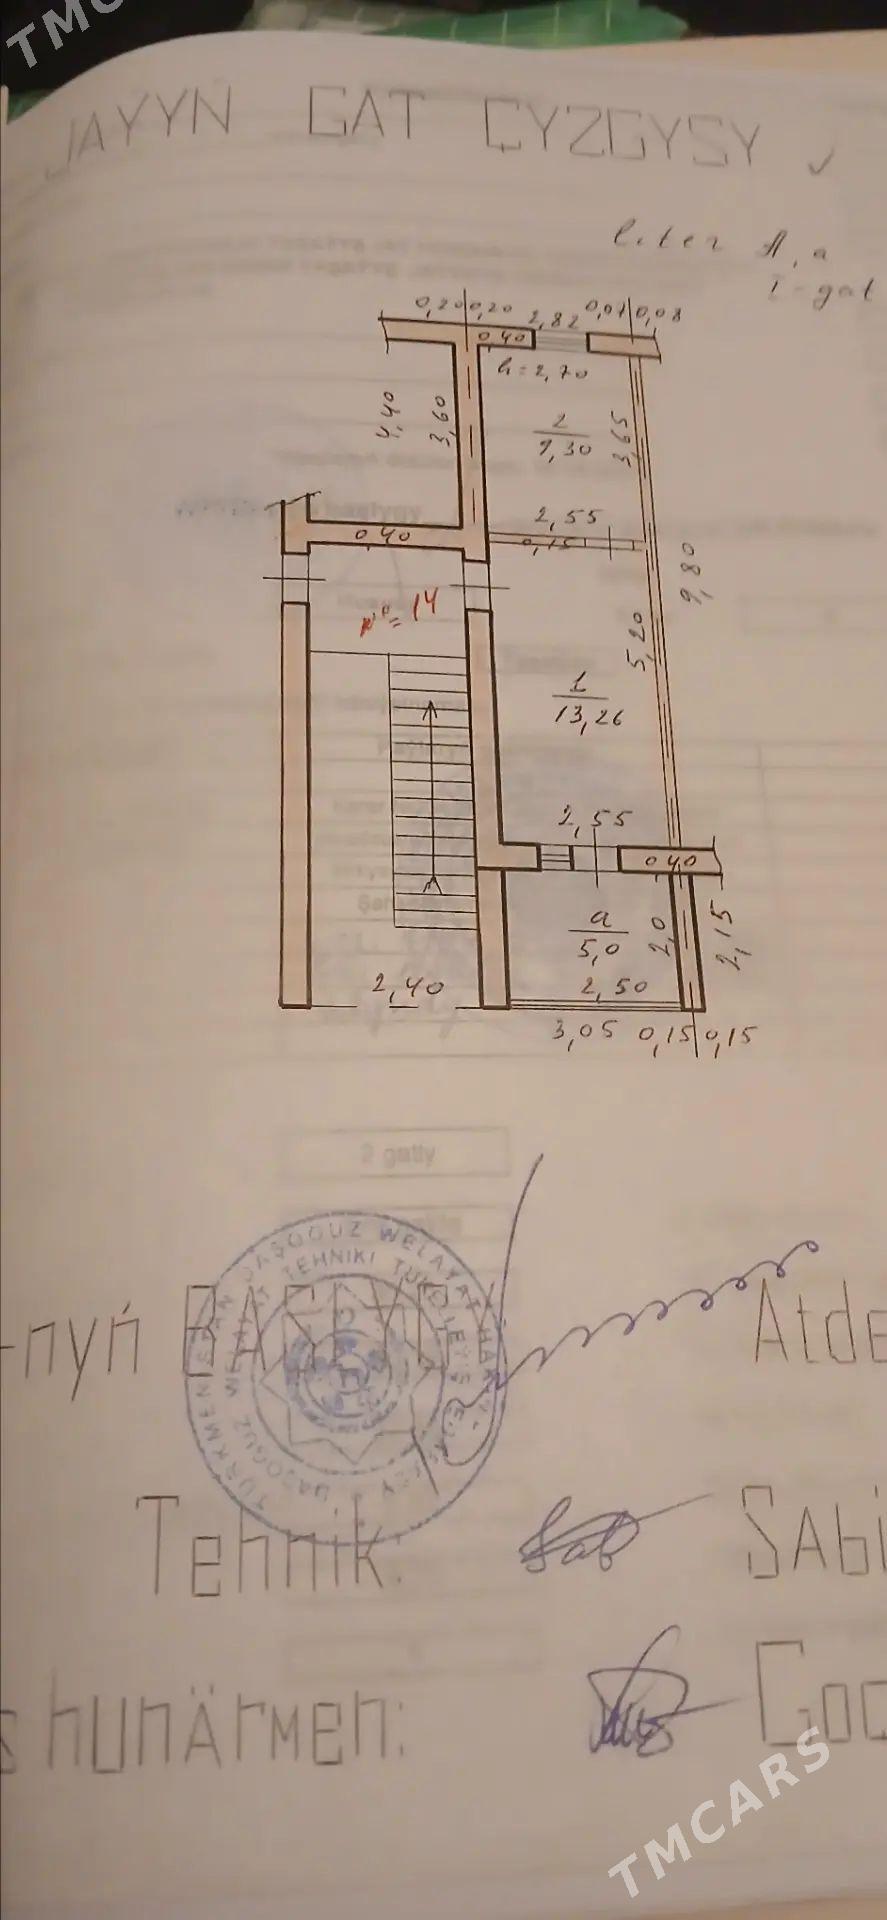 TMC
JAÝYŇ GAT ÇYZGYSY
liter A, a
I-gat
0,20 0,20 2,82 0,07 0,08
0,40
h=2,70
4,40 3,60 2 3,65
9,30
2,55
0,40 0,15
9,80
№=14
5,20
1
13,26
2,55
0,40
a
5,0 2,0 2,15
2,40 2,50
3,05 0,15 0,15
2 gatly
-nyň Atde
TÜRKMENISTAN DAŞOGUZ WELAÝAT
Tehnik: SAbi
s hunÄrmen: Goc
TMCARS